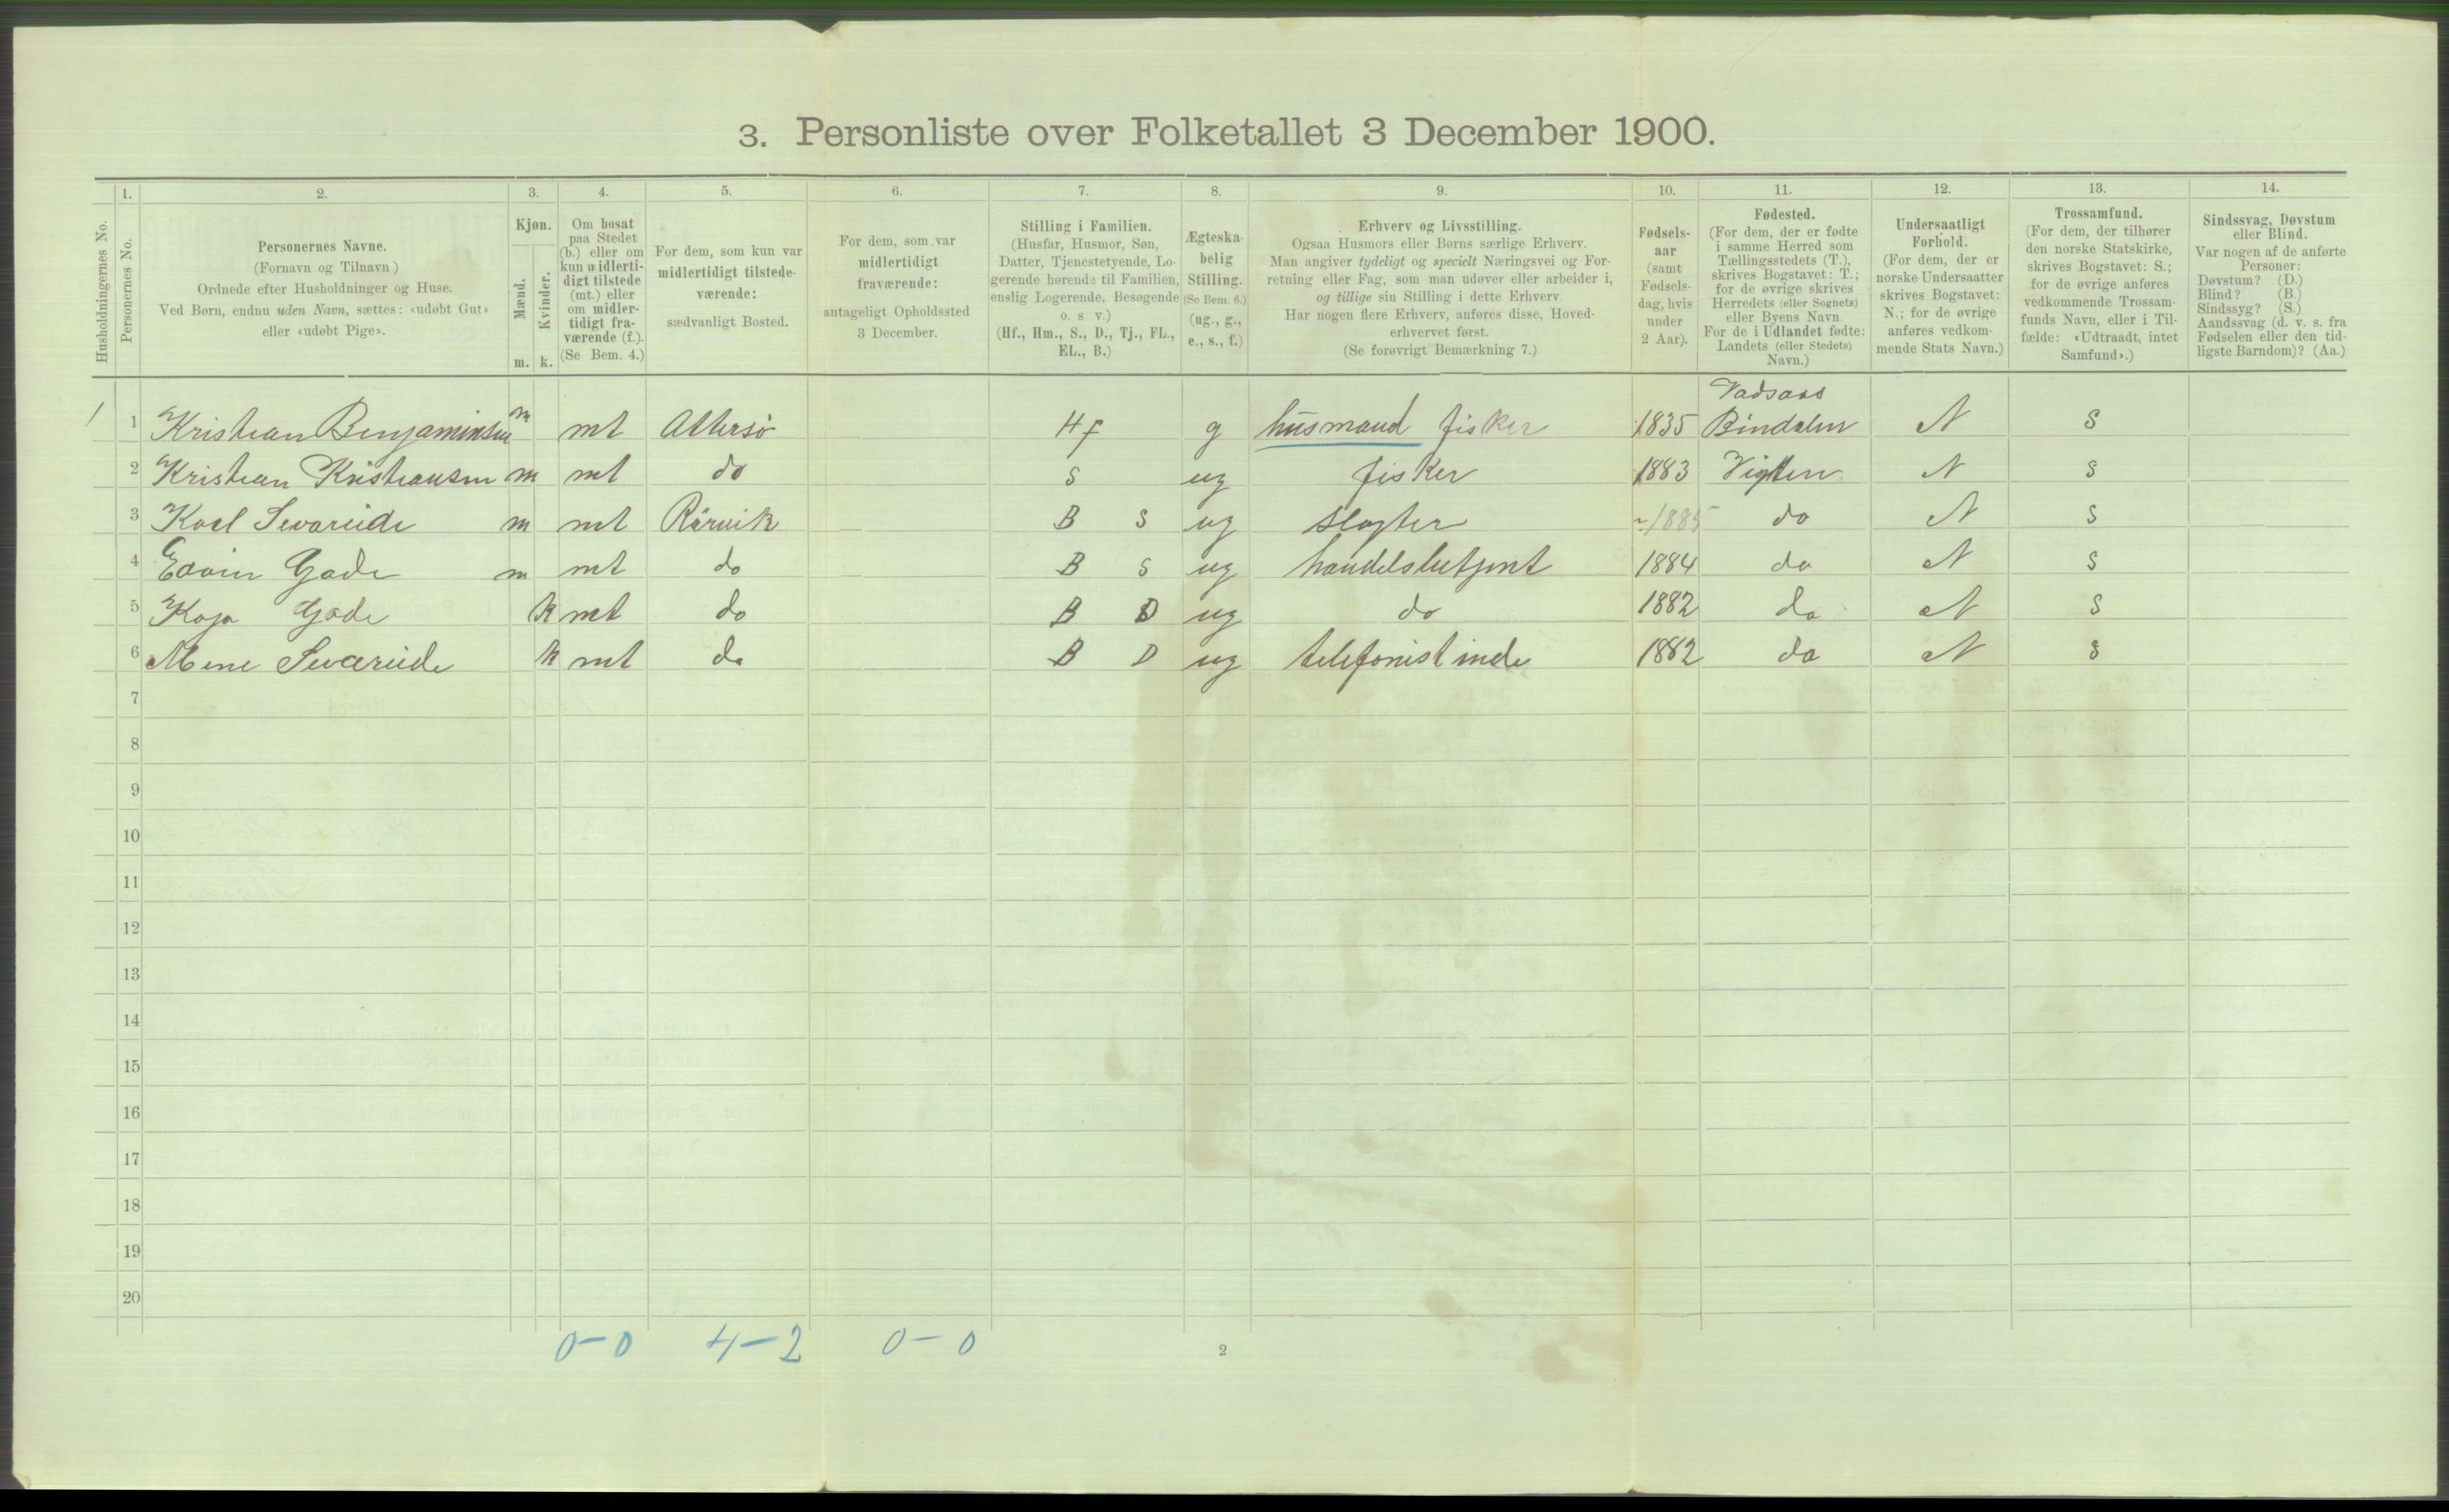 3. Personliste over Folketallet 3 December 1900.
1. 2. 3. 4. 5. 6. 7. 8. 9. 10. 11. 12. 13. 14.
Husholdningernes No.
Personernes No.
Personernes Navne.
(Fornavn og Tilnavn)
Ordnede efter Husholdninger og Huse.
Ved Børn, endnu uden Navn, sættes: «udøbt Gut»
eller «udøbt Pige».
Kjøn.
Mænd.
Kvinder.
m. k.
Om bosat
paa Stedet
(b.) eller om
kun midlerti-
digt tilstede
(mt.) eller
om midler-
tidigt fra-
værende (f.).
(Se Bem. 4.)
For dem, som kun var
midlertidigt tilstede-
værende:
sædvanligt Bosted.
For dem, som var
midlertidigt
fraværende:
antageligt Opholdssted
3 December.
Stilling i Familien.
(Husfar, Husmor, Søn,
Datter, Tjenestetyende, Lo-
gerende hørende til Familien,
enslig Logerende, Besøgende
o. s v.)
(Hf., Hm., S., D., Tj., FL.,
EL., B.)
Ægteska-
belig
Stilling.
(Se Bem. 6.)
(ug., g.,
e., s., f.)
Erhverv og Livsstilling.
Ogsaa Husmors eller Børns særlige Erhverv.
Man angiver tydeligt og specielt Næringsvei og For-
retning eller Fag, som man udøver eller arbeider i,
og tillige sin Stilling i dette Erhverv.
Har nogen flere Erhverv, anføres disse, Hoved-
erhvervet først.
(Se forøvrigt Bemærkning 7.)
Fødsels-
aar
(samt
Fødsels-
dag, hvis
under
2 Aar).
Fødested.
(For dem, der er fødte
i samme Herred som
Tællingsstedets (T.),
skrives Bogstavet: T.;
for de øvrige skrives
Herredets (eller Sognets)
eller Byens Navn.
For de i Udlandet fødte:
Landets (eller Stedets)
Navn.)
Undersaatligt
Forhold.
(For dem, der er
norske Undersaatter
skrives Bogstavet:
N.; for de øvrige
anføres vedkom-
mende Stats Navn.)
Trossamfund.
(For dem, der tilhører
den norske Statskirke,
skrives Bogstavet: S.;
for de øvrige anføres
vedkommende Trossam-
funds Navn, eller i Til-
fælde: «Udtraadt, intet
Samfund».)
Sindssvag, Døvstum
eller Blind.
Var nogen af de anførte
Personer:
Døvstum? (D.)
Blind? (B.)
Sindssyg? (S.)
Aandssvag (d. v. s. fra
Fødselen eller den tid-
ligste Barndom)? (Aa.)
Vadsaas
1 1 Kristian Benjaminsen m mt Attersø Hf g husmand fisker 1835 Bindalen N S
2 Kristian Kristiansen m mt do S ug fisker 1883 Vigten N S
3 Karl Sevareide m mt Rørvik B S ug slagter 1885 do N S
4 Edvin Gade m mt do B S ug handelsbetjent 1884 do N S
5 Kaja Gade k mt do B D ug do 1882 do N S
6 Mene Sevareide k mt do B D ug telefonistinde 1882 do N S
7
8
9
10
11
12
13
14
15
16
17
18
19
20
0-0 4-2 0-0
2